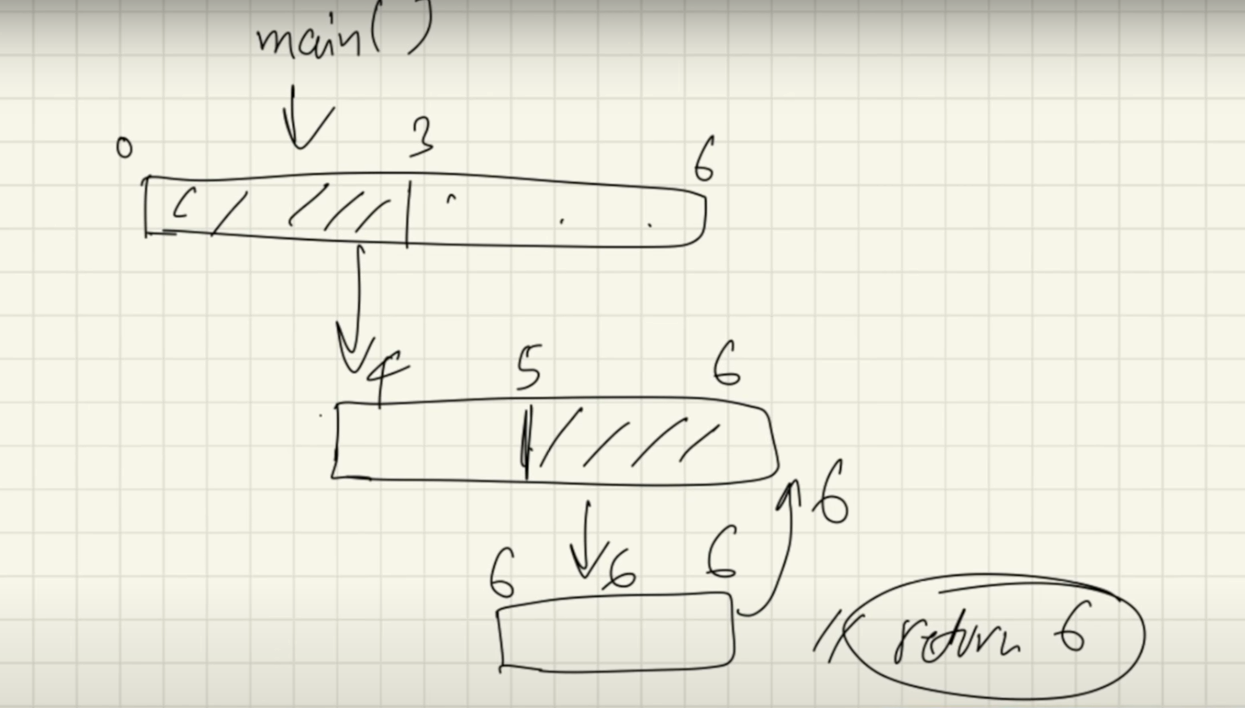 main()
0 3 6
4 5 6
6
6 6 6
return 6